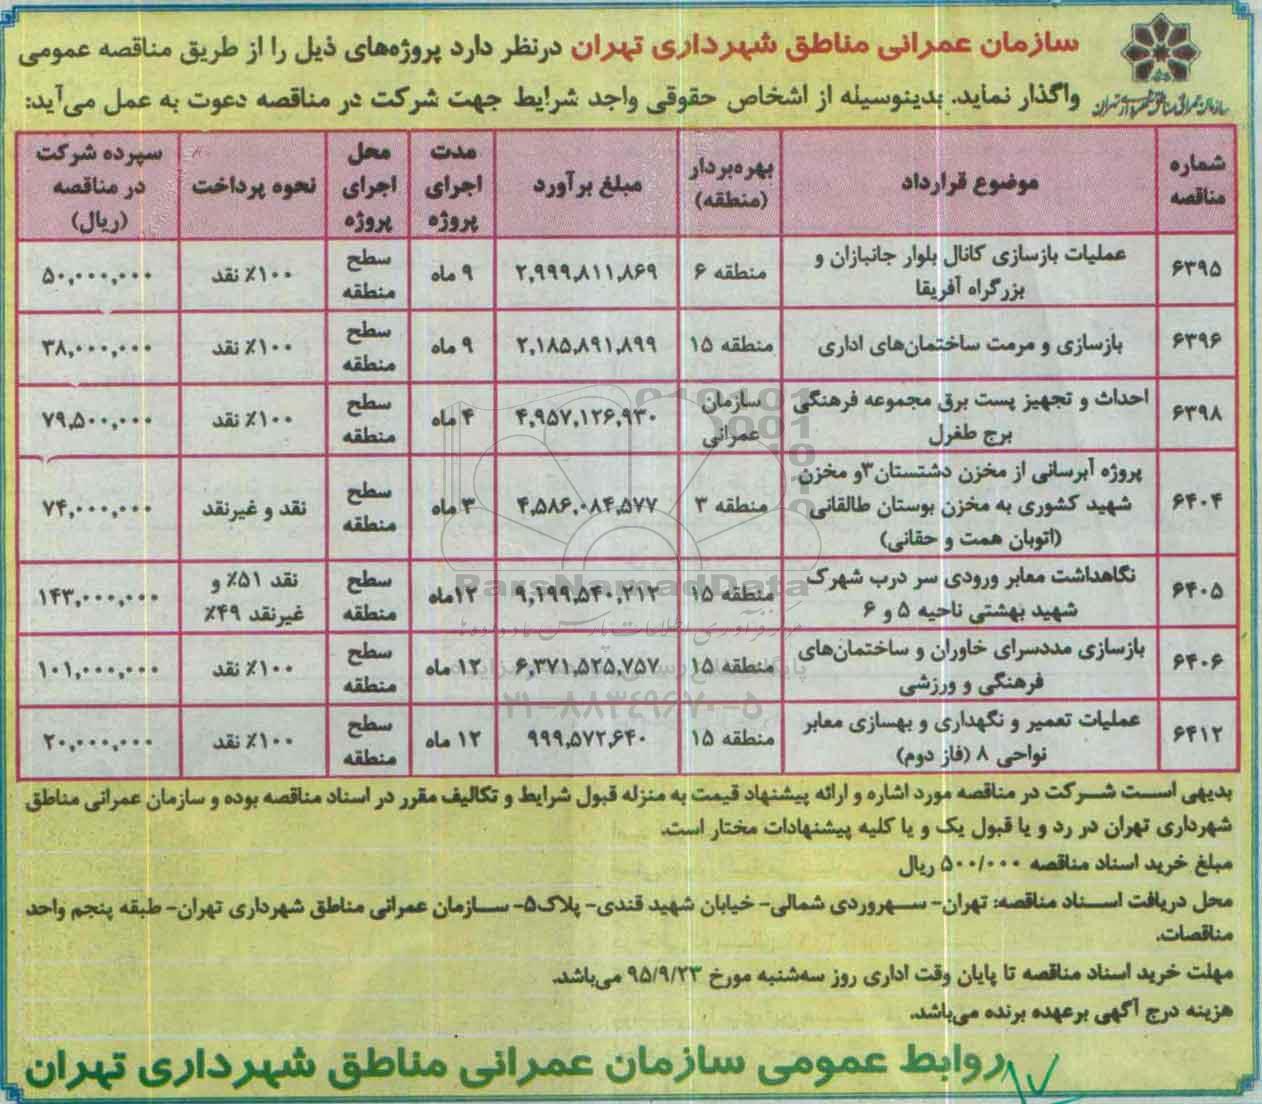 سازمان عمرانی مناطق شهرداری تهران درنظر دارد پروژه‌های ذیل را از طریق مناقصه عمومی
واگذار نماید. بدینوسیله از اشخاص حقوقی واجد شرایط جهت شرکت در مناقصه دعوت به عمل می‌آید:
سازمان عمرانی مناطق شهرداری تهران
شماره مناقصه | موضوع قرارداد | بهره‌بردار (منطقه) | مبلغ برآورد | مدت اجرای پروژه | محل اجرای پروژه | نحوه پرداخت | سپرده شرکت در مناقصه (ریال)
۶۳۹۵ | عملیات بازسازی کانال بلوار جانبازان و بزرگراه آفریقا | منطقه ۶ | ۲,۹۹۹,۸۱۱,۸۶۹ | ۹ ماه | سطح منطقه | ۱۰۰٪ نقد | ۵۰,۰۰۰,۰۰۰
۶۳۹۶ | بازسازی و مرمت ساختمان‌های اداری | منطقه ۱۵ | ۲,۱۸۵,۸۹۱,۸۹۹ | ۹ ماه | سطح منطقه | ۱۰۰٪ نقد | ۳۸,۰۰۰,۰۰۰
۶۳۹۸ | احداث و تجهیز پست برق مجموعه فرهنگی برج طغرل | سازمان عمرانی | ۴,۹۵۷,۱۲۶,۹۳۰ | ۴ ماه | سطح منطقه | ۱۰۰٪ نقد | ۷۹,۵۰۰,۰۰۰
۶۴۰۴ | پروژه آبرسانی از مخزن دشتستان۳و مخزن شهید کشوری به مخزن بوستان طالقانی (اتوبان همت و حقانی) | منطقه ۳ | ۴,۵۸۶,۰۸۴,۵۷۷ | ۳ ماه | سطح منطقه | نقد و غیرنقد | ۷۴,۰۰۰,۰۰۰
۶۴۰۵ | نگاهداشت معابر ورودی سر درب شهرک شهید بهشتی ناحیه ۵ و ۶ | منطقه ۱۵ | ۹,۱۹۹,۵۴۰,۲۱۲ | ۱۲ماه | سطح منطقه | نقد ۵۱٪ و غیرنقد ۴۹٪ | ۱۴۳,۰۰۰,۰۰۰
۶۴۰۶ | بازسازی مددسرای خاوران و ساختمان‌های فرهنگی و ورزشی | منطقه ۱۵ | ۶,۳۷۱,۵۲۵,۷۵۷ | ۱۲ ماه | سطح منطقه | ۱۰۰٪ نقد | ۱۰۱,۰۰۰,۰۰۰
۶۴۱۲ | عملیات تعمیر و نگهداری و بهسازی معابر نواحی ۸ (فاز دوم) | منطقه ۱۵ | ۹۹۹,۵۷۲,۶۴۰ | ۱۲ ماه | سطح منطقه | ۱۰۰٪ نقد | ۲۰,۰۰۰,۰۰۰
ParsNamadData
۰۲۱-۸۸۳۴۹۶۷۰-۵
بدیهی است شرکت در مناقصه مورد اشاره و ارائه پیشنهاد قیمت به منزله قبول شرایط و تکالیف مقرر در اسناد مناقصه بوده و سازمان عمرانی مناطق
شهرداری تهران در رد و یا قبول یک و یا کلیه پیشنهادات مختار است.
مبلغ خرید اسناد مناقصه ۵۰۰/۰۰۰ ریال
محل دریافت اسناد مناقصه: تهران- سهروردی شمالی- خیابان شهید قندی- پلاک۵- سازمان عمرانی مناطق شهرداری تهران- طبقه پنجم واحد
مناقصات.
مهلت خرید اسناد مناقصه تا پایان وقت اداری روز سه‌شنبه مورخ ۹۵/۹/۲۳ می‌باشد.
هزینه درج آگهی برعهده برنده می‌باشد.
روابط عمومی سازمان عمرانی مناطق شهرداری تهران